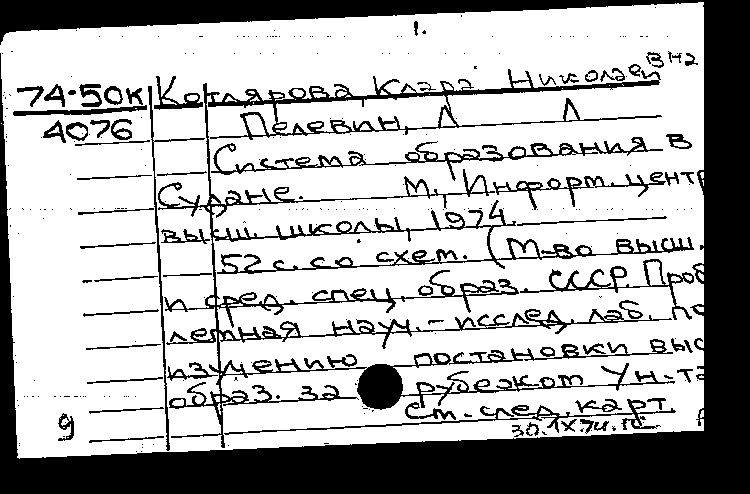 1.
74-50к Котлярова, Клара Николаевна
4076 Пелевин, Л Л
Система образования в
Судане. М., Информ. центр
высш. школы, 1974.
52 с. со схем. (М-во высш.
и сред. спец. образ. СССР. Проб
лемная науч.-исслед. лаб. по
изучению постановки выс
образ. за рубежом Ун-та
9 См. след. карт.
30.IX.74.